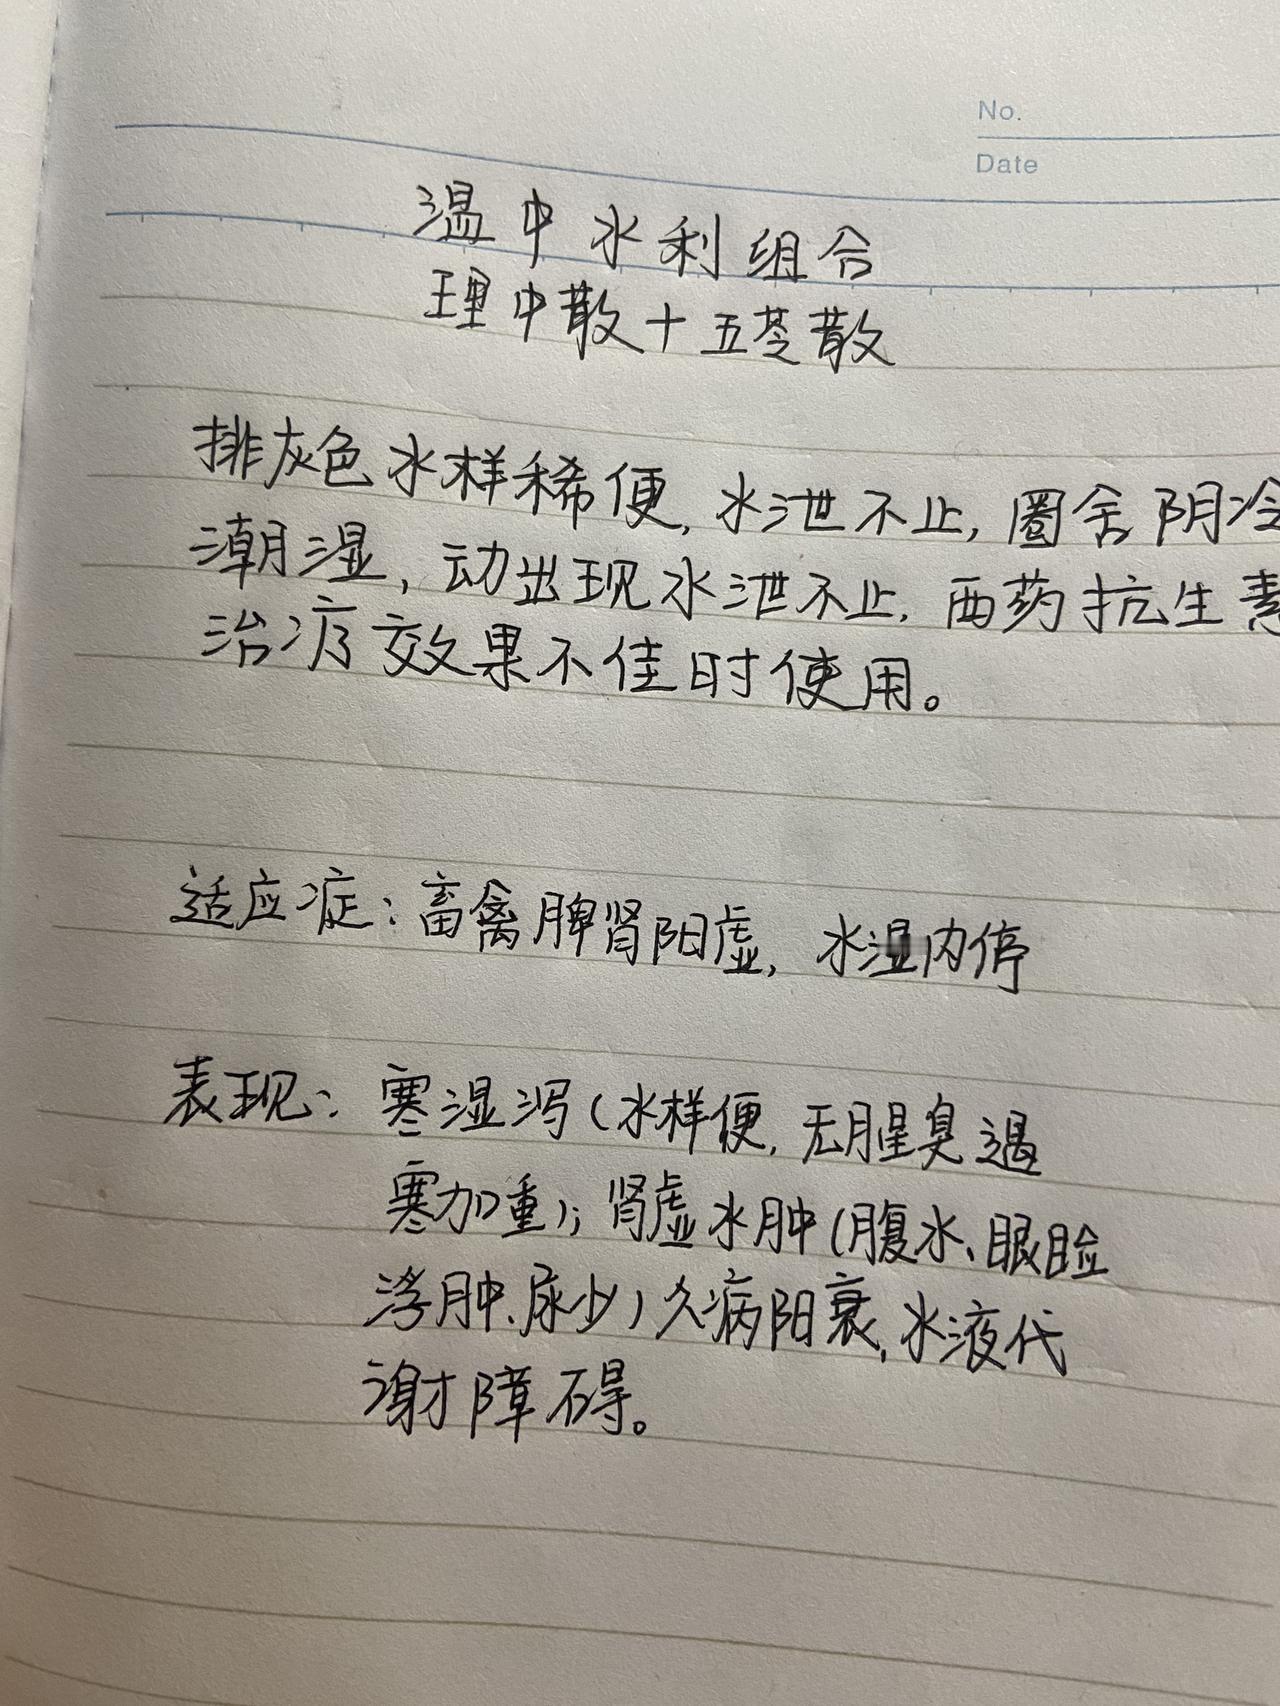 No.
Date
温中水利组合
理中散+五苓散
排灰色水样稀便,水泄不止,圈舍阴冷
潮湿,动出现水泄不止,西药抗生素
治疗效果不佳时使用。
适应症:畜禽脾肾阳虚,水湿内停
表现:寒湿泻(水样便,无腥臭遇
寒加重);肾虚水肿(腹水、眼睑
浮肿、尿少)久病阳衰,水液代
谢障碍。